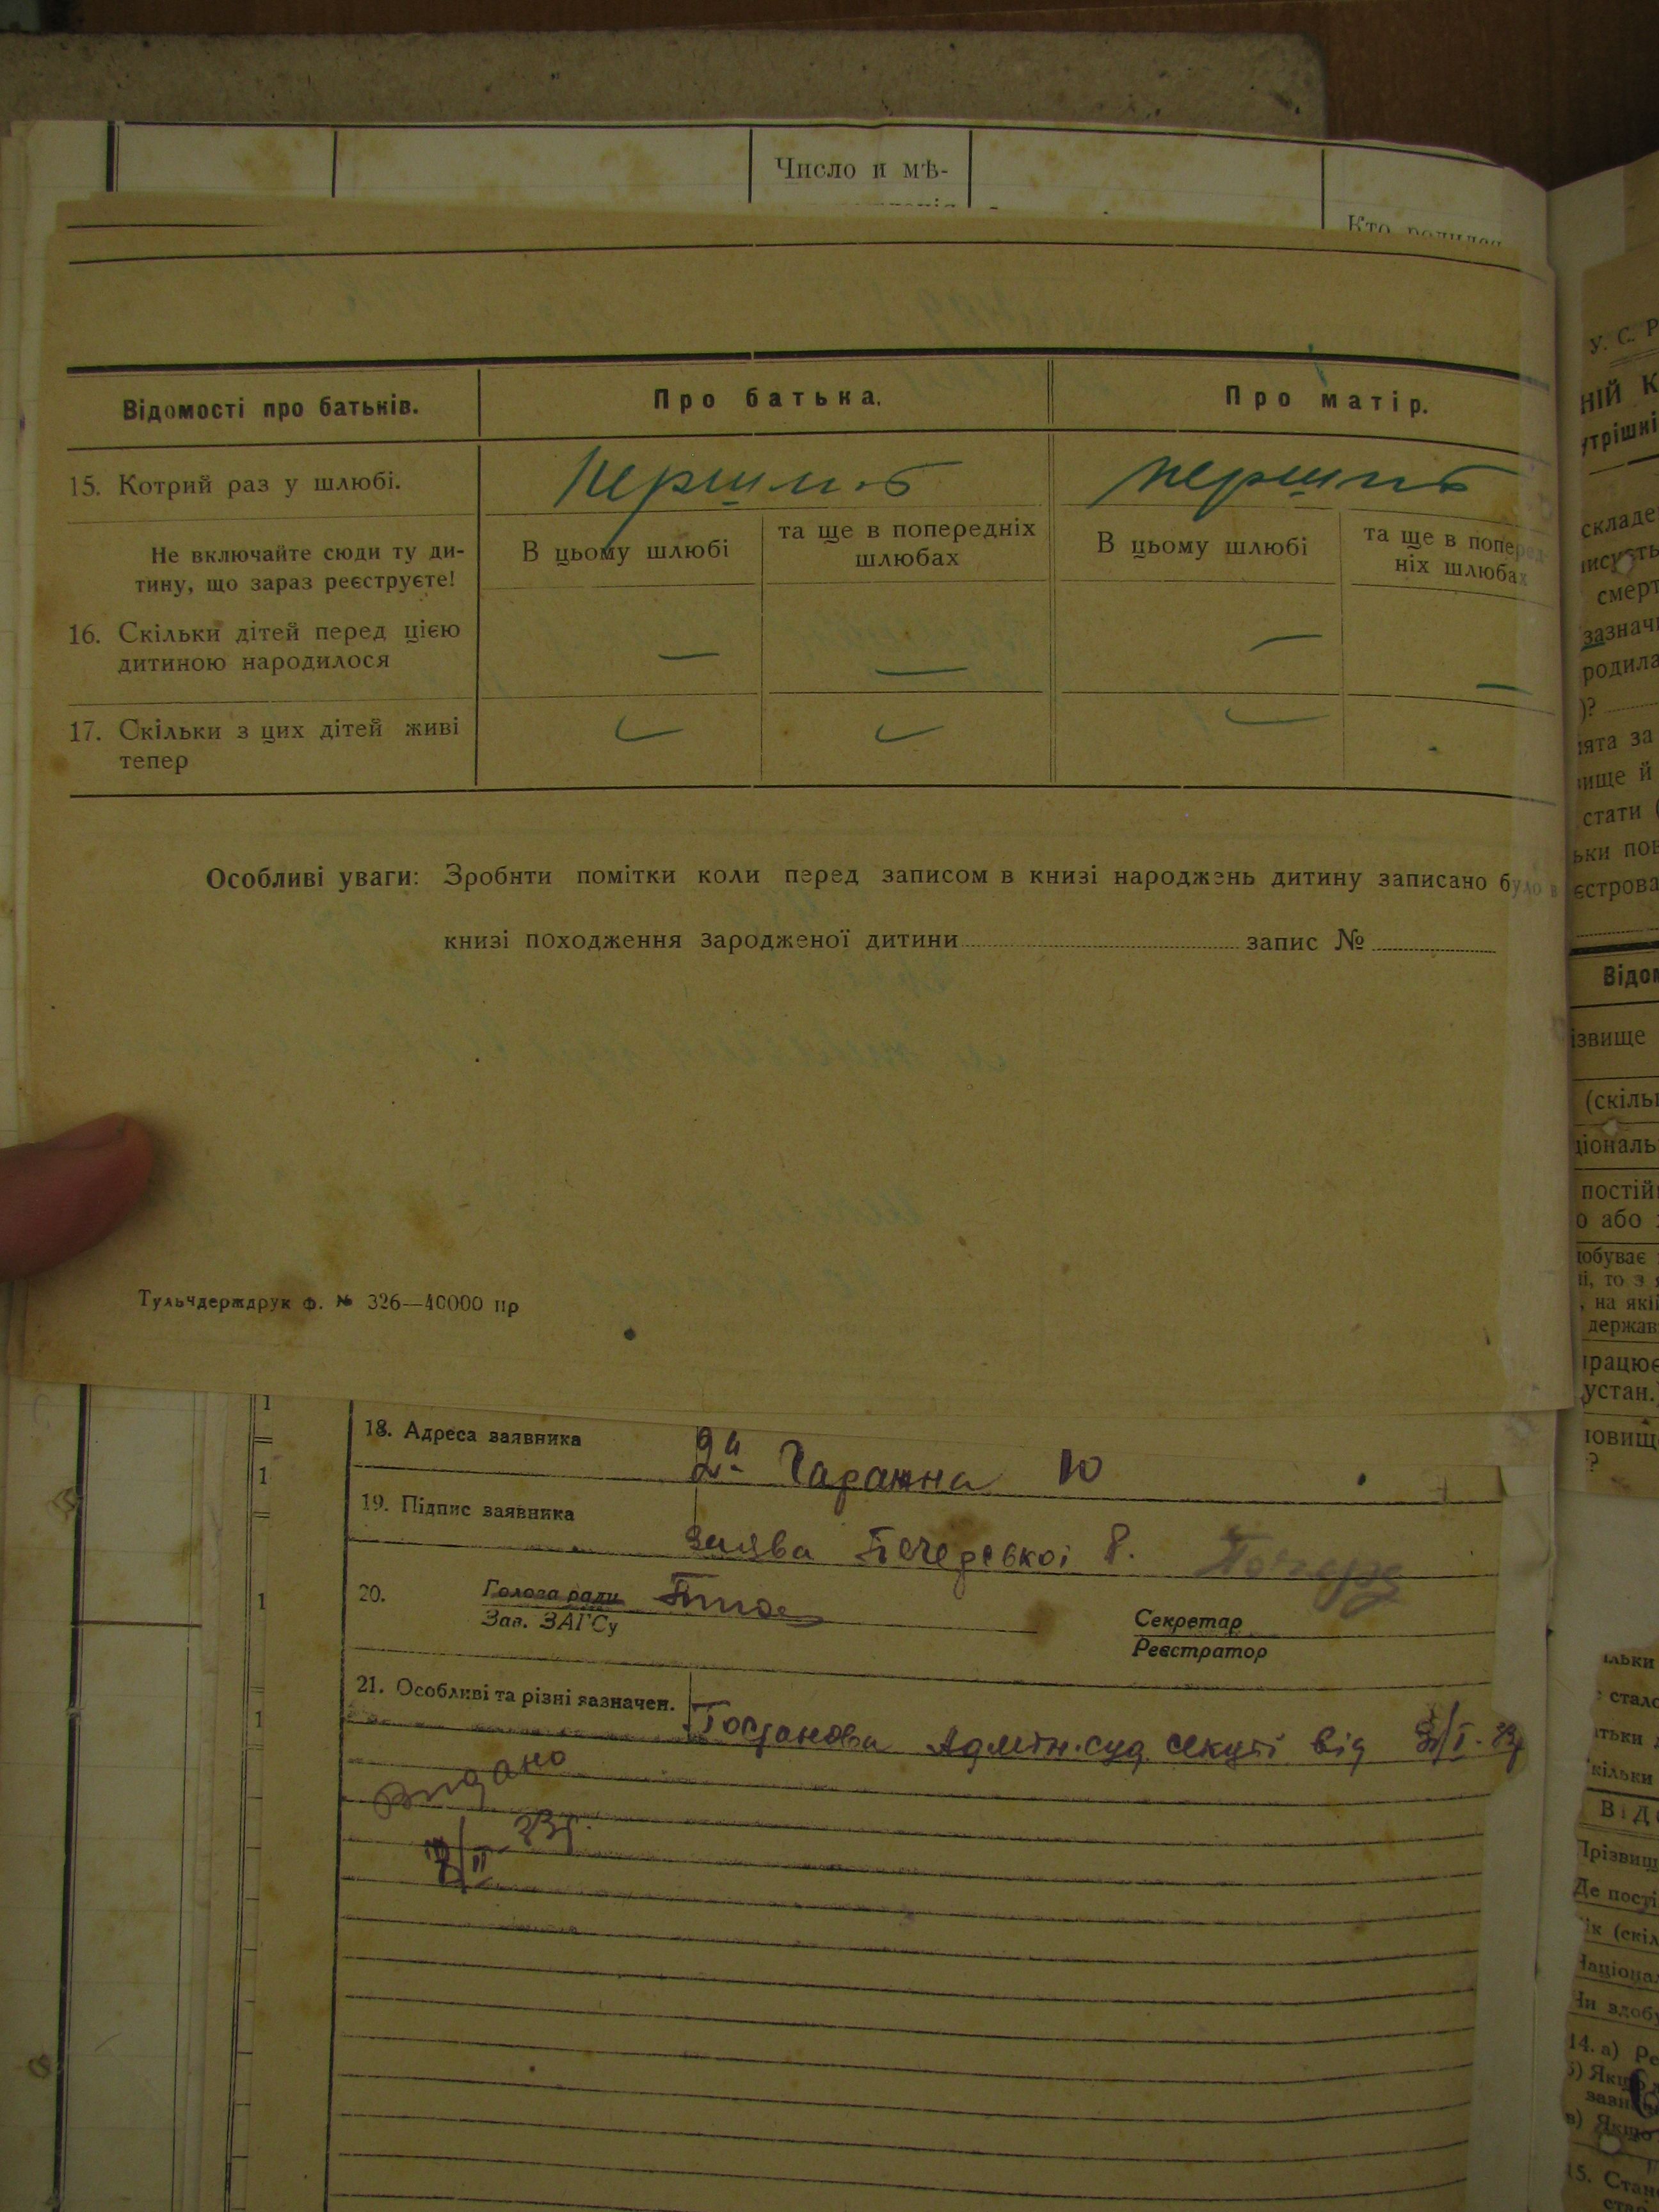 Число и мѣ-
Кто родился
Відомості про батьків.
Про батька.
Про матір.
15. Котрий раз у шлюбі.
Не включайте сюди ту ди-
тину, що зараз реєструєте!
В цьому шлюбі
та ще в попередніх
шлюбах
В цьому шлюбі
та ще в поперед-
ніх шлюбах
16. Скільки дітей перед цією
дитиною народилося
17. Скільки з цих дітей живі
тепер
Особливі уваги: Зробити помітки коли перед записом в книзі народжень дитину записано було в
книзі походження зародженої дитини запис №
Тульчдерждрук ф. № 326—40000 пр
18. Адреса заявника
10
19. Підпис заявника
заява Печерської
20. Голова ради
Зав. ЗАГСу
Секретар
Реєстратор
21. Особливі та різні зазначен.
Постанова Адмін.суд. секції від
Видано
У. С. Р
НІЙ К
утрішні
складе
смерт
зазнач
родила
)?
ята за
ище й
стати (
ьки пов
єстрова
Відом
ізвище
(скіль
ціональ
постій
о або
обуває
, на які
держав
працює
устан.
ювищ
ільки
стало
атьки
кільки
ВІД
Прізвищ
Де пості
ік (скіл
Націона
Чи здоб
14. а) Ре
б) Якщо
зазн
в) Якщо
15. Стан